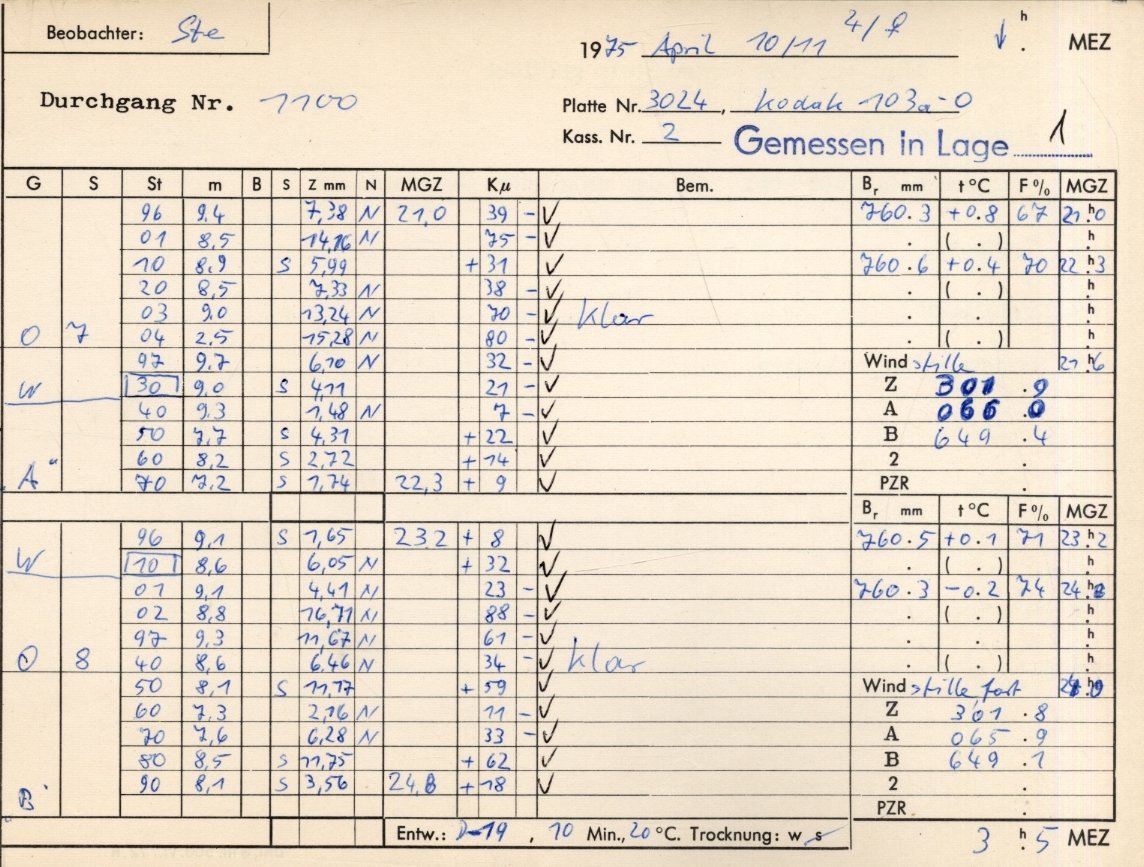 Beobachter: Ste
1975 April 10/11 4/♀ h . MEZ
Durchgang Nr. 1100
Platte Nr. 3024, Kodak 103a-O
Kass. Nr. 2 Gemessen in Lage 1
G S St m B S Z mm N MGZ Kμ Bem. Br mm t °C F % MGZ
96 9,4 7,38 N 21,0 39 - ✓ 760.3 +0.8 67 21h.0
01 8,5 14,16 N 75 - ✓ . ( . ) h.
10 8,9 S 5,99 +31 ✓ 760.6 +0.4 70 22h.3
20 8,5 7,33 N 38 - ✓ . ( . ) h.
03 9,0 13,24 N 70 - ✓ klar . . h.
O 7 04 2,5 15,28 N 80 - ✓ . ( . ) h.
97 9,7 6,10 N 32 - ✓ Wind stille 21h.6
W 30 9,0 S 4,11 21 - ✓ Z 301 .9
40 9,3 1,48 N 7 - ✓ A 066 .0
50 7,7 S 4,31 +22 ✓ B 649 .4
60 8,2 S 2,72 +14 ✓ 2 .
A" 70 7,2 S 1,74 22,3 + 9 ✓ PZR .
Br mm t °C F % MGZ
96 9,1 S 1,65 23,2 + 8 ✓ 760.5 +0.1 71 23h.2
W 10 8,6 6,05 N +32 ✓ . ( . ) h.
01 9,1 4,41 N 23 - ✓ 760.3 -0.2 74 24h.8
02 8,8 16,71 N 88 - ✓ . ( . ) h.
97 9,3 11,67 N 61 - ✓ . . h.
O 8 40 8,6 6,46 N 34 - ✓ klar . ( . ) h.
50 8,1 S 11,17 +59 ✓ Wind stille fast
60 7,3 2,16 N 11 - ✓ Z 301 .8
70 7,6 6,28 N 33 - ✓ A 065 .9
80 8,5 S 11,75 +62 ✓ B 649 .1
90 8,1 S 3,56 24,8 +18 ✓ 2 .
B PZR .
Entw.: D-19, 10 Min., 20 °C. Trocknung: w s 3 h.5 MEZ